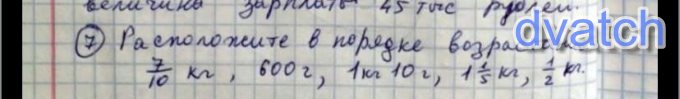 величина зарплаты 45 тыс рублей.
dvatch
⑦ Расположите в порядке
7/10 кг, 600 г, 1 кг 10 г, 1 1/5 кг, 1/2 кг.